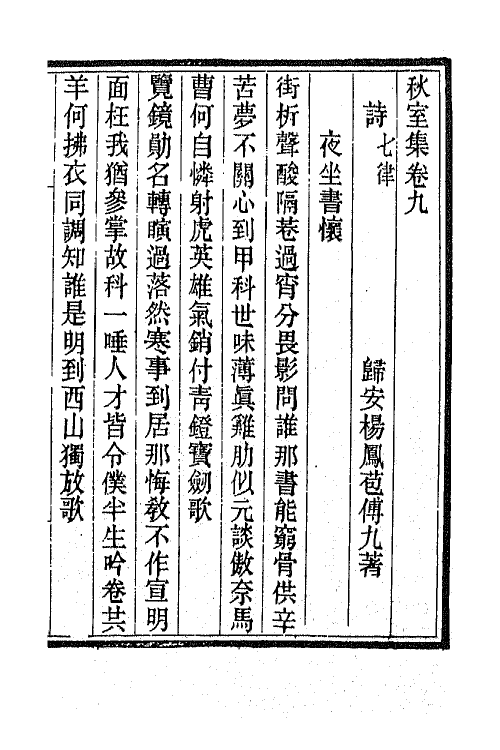 秋室集卷九
詩 七律 歸安楊鳳苞傅九著
夜坐書懷
街柝聲酸隔巷過宵分畏影問誰那書能窮骨供辛
苦夢不關心到甲科世味薄眞雞肋似元談傲奈馬
曹何自憐射虎英雄氣銷付靑鐙寶劒歌
覽鏡勛名轉瞚過落然寒事到居那悔敎不作宣明
面枉我猶參掌故科一唾人才皆令僕半生吟卷共
羊何拂衣同調知誰是明到西山獨放歌